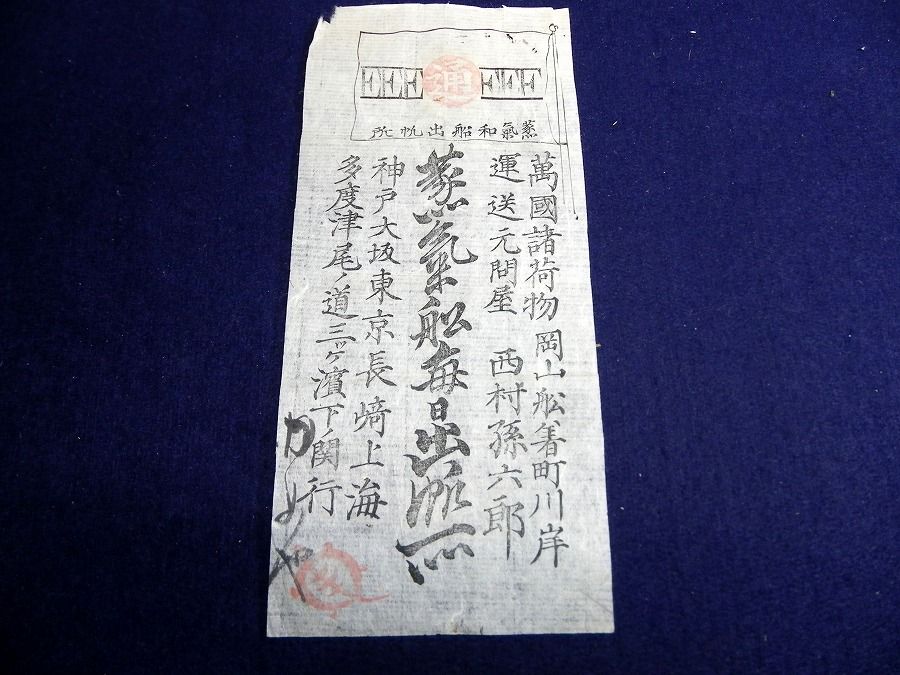 通
蒸氣和舩出帆所
萬國諸荷物 岡山舩着町川岸
運送元問屋 西村孫六郎
蒸氣舩毎日出帆所
神戸大坂東京長崎上海
多度津尾ノ道三ヶ濱下ノ関行
かめや